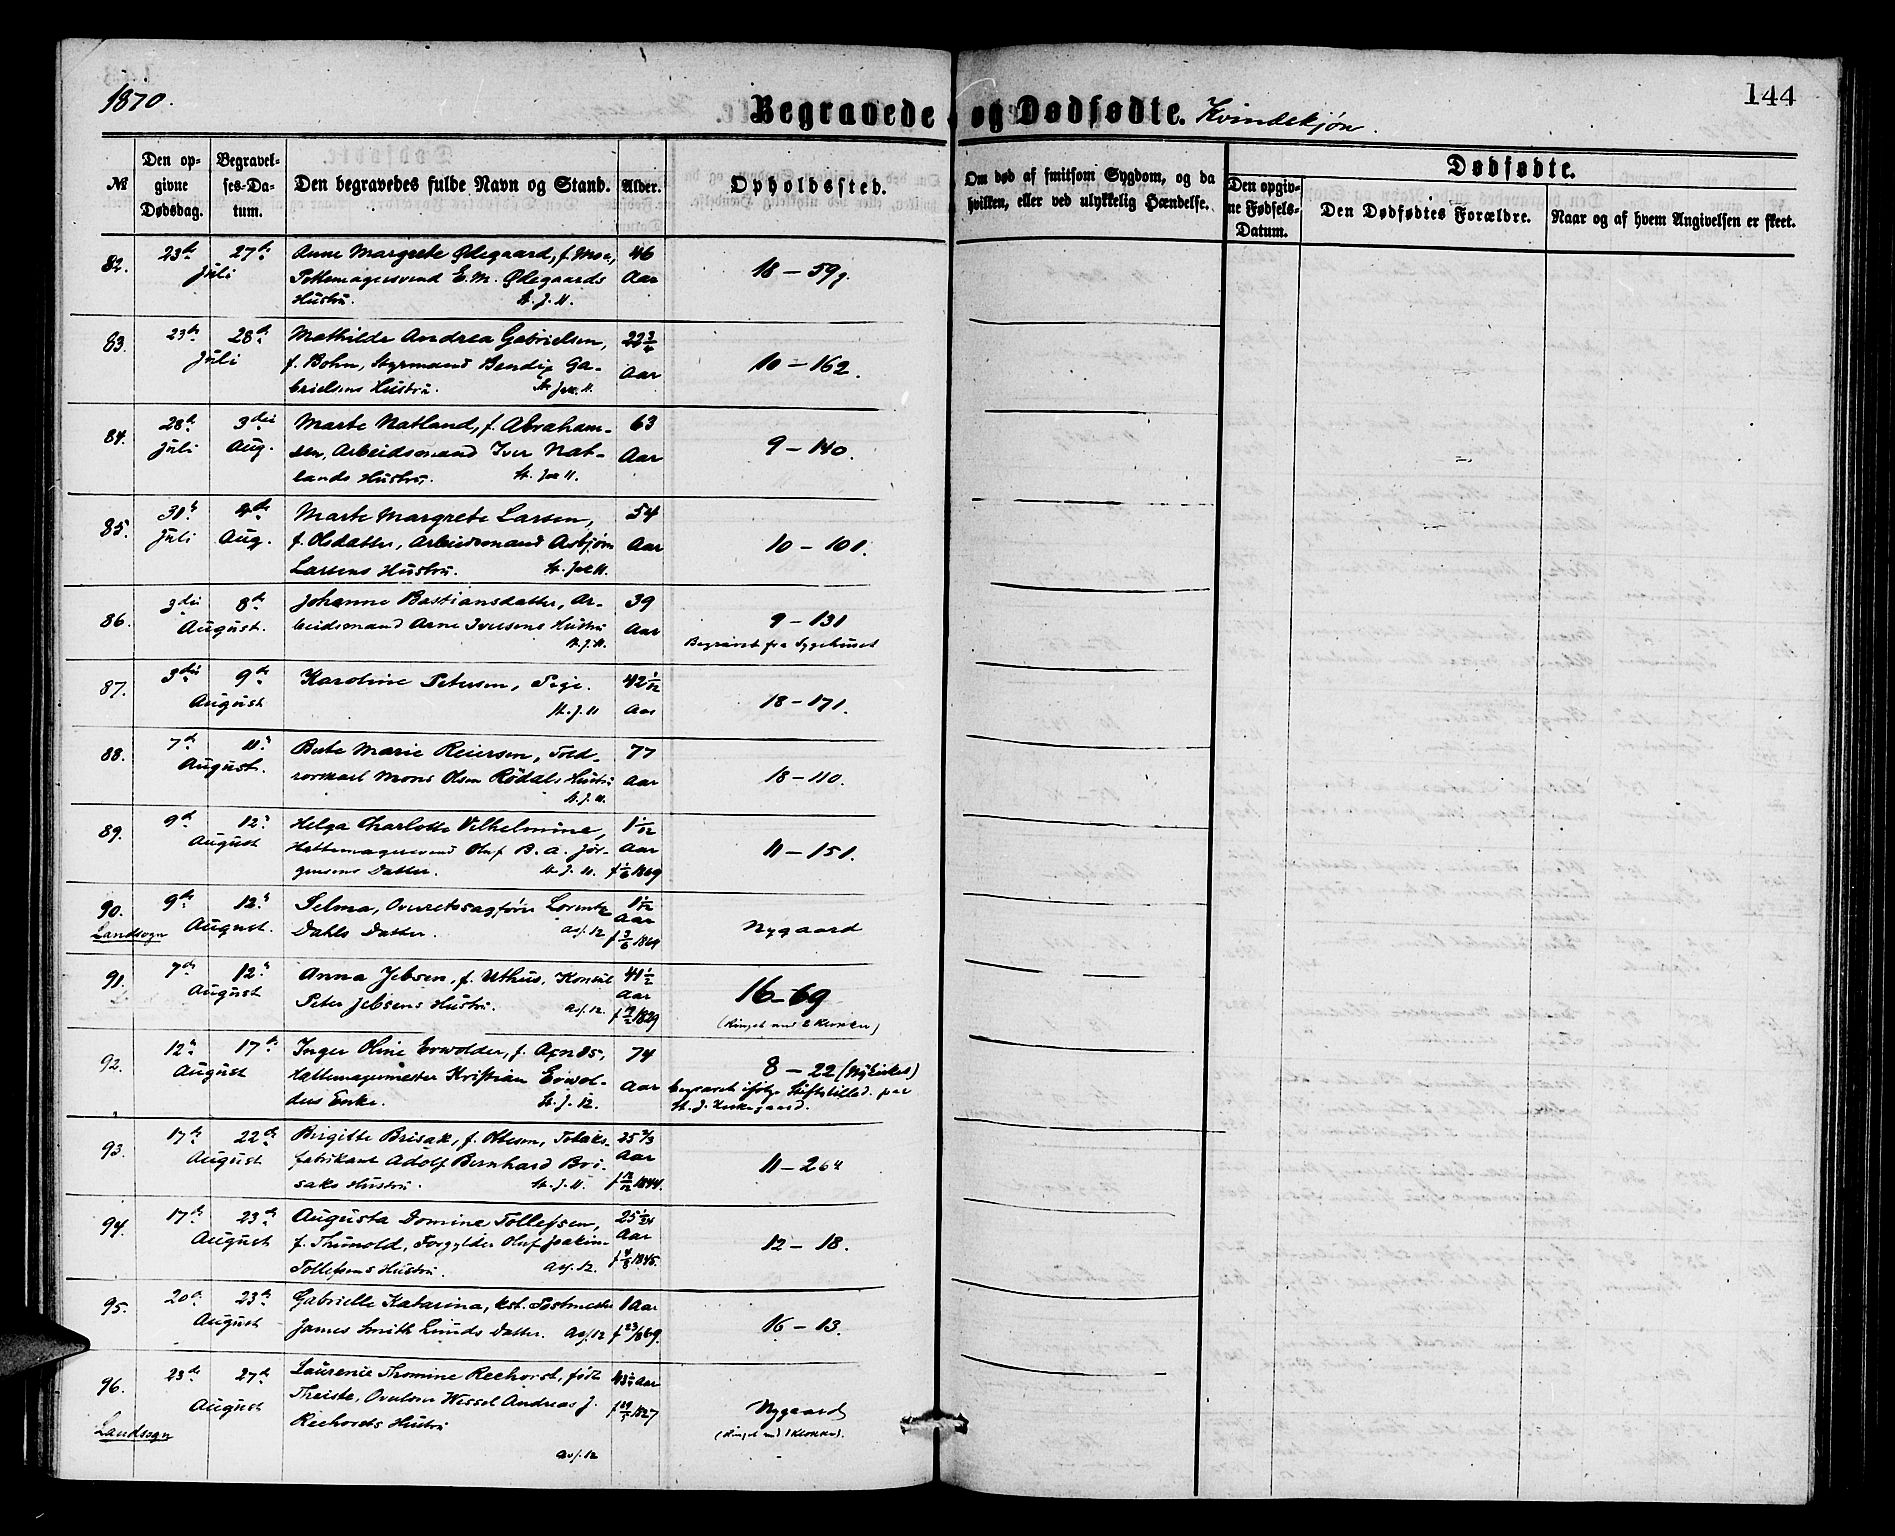 1870.
Begravede og Dødfødte. Kvindekjøn.
144
№
Den opgivne Dødsdag.
Begravelses-Datum.
Den begravedes fulde Navn og Stand.
Alder.
Opholdssted.
Om død af smitsom Sygdom, og da hvilken, eller ved ulykkelig Hændelse.
Dødfødte.
Den opgivne Fødsels-Datum.
Den Dødfødtes Forældre.
Naar og af hvem Angivelsen er skeet.
82. 23de 27de Juli
Anne Margrete Ødegaard, f. Moe,
Pottemagersvend E. M. Ødegaards
Hustru. St. J. 11.
46 Aar
18 – 59
83. 23de 28de Juli
Mathilde Andrea Gabrielsen,
f. Bohn, Styrmand Bendix Ga-
brielsens Hustru. St. Jac. 11.
22 3/4 Aar
10 – 162.
84. 28de Juli 3die Aug.
Marte Natland, f. Abraham-
sen, Arbeidsmand Iver Nat-
lands Hustru. St. Jac 11.
63 Aar
9 – 140.
85. 31te Juli 4de Aug.
Marte Margrete Larsen,
f. Olsdatter, Arbeidsmand Asbjørn
Larsens Hustru. St. Jac 11.
54 Aar
10 – 101.
86. 3die 8de August.
Johanne Bastiansdatter, Ar-
beidsmand Arne Iversens Hustru
St. J. 11.
39 Aar
9 – 131
Begravet fra Sygehuset
87. 3die 9de August
Karoline Petersen, Pige.
St. J. 11
42 1/12 Aar
18 – 171.
88. 7de 11te August.
Berte Marie Reiersen, Told-
rorskarl Mons Olsen Rödals Hustru
St. J. 11.
77 Aar
18 – 110.
89. 9de 12te August
Helga Charlotte Vilhelmine,
Hattemagersvend Oluf B. A. Jör-
gensens Datter. St. J. 11.
1 1/12 Aar
11 – 151.
90. 9de 12te August.
Landsogn
Selma, Overretssagfører Lorentz
Dahls Datter. Asf. 12
1 1/12 Aar
f 3/6 1869
Nygaard
91. 7de 12te August
Anna Jebsen, f. Uthus, Konsul
Peter Jebsens Hustru. Asf. 12.
41 1/2 Aar
16 – 69
(Ringet med 2 Klokker)
92. 12te 17de August
Inger Oline Erwolder, f.
Hattemagermester Kristian Erwol-
ders Enke. St. J. 12.
74 Aar
8 – 22 (Nykirkes)
begravet ifölge Stiftstillad. paa
St. J. Kirkegaard.
93. 17de 22de August
Birgitte Brisak, f. Ottesen, Tobaks-
fabrikant Adolf Bernhard Bri-
saks Hustru. St. J. 11.
25 2/3 Aar
11 – 264
94. 17de 23de August
Augusta Domine Tollefsen,
f. Thunold, Forgylder Oluf Joakim
Tollefsens Hustru. Asf. 12.
25 1/24 Aar
12 – 18.
95. 20de 23de August
Gabrielle Katarina, kst. Postmester
James Smith Lunds Datter. Asf 12
1 Aar
f 23/8 69.
16 – 13.
96. 23de 27de August
Landsogn
Laurenie Thomine Reehorst, född
Theiste, Overlærer Wessel Andreas J.
Reehorsts Hustru
Asf. 12
Nygaard
(Ringet med 1 Klokke).